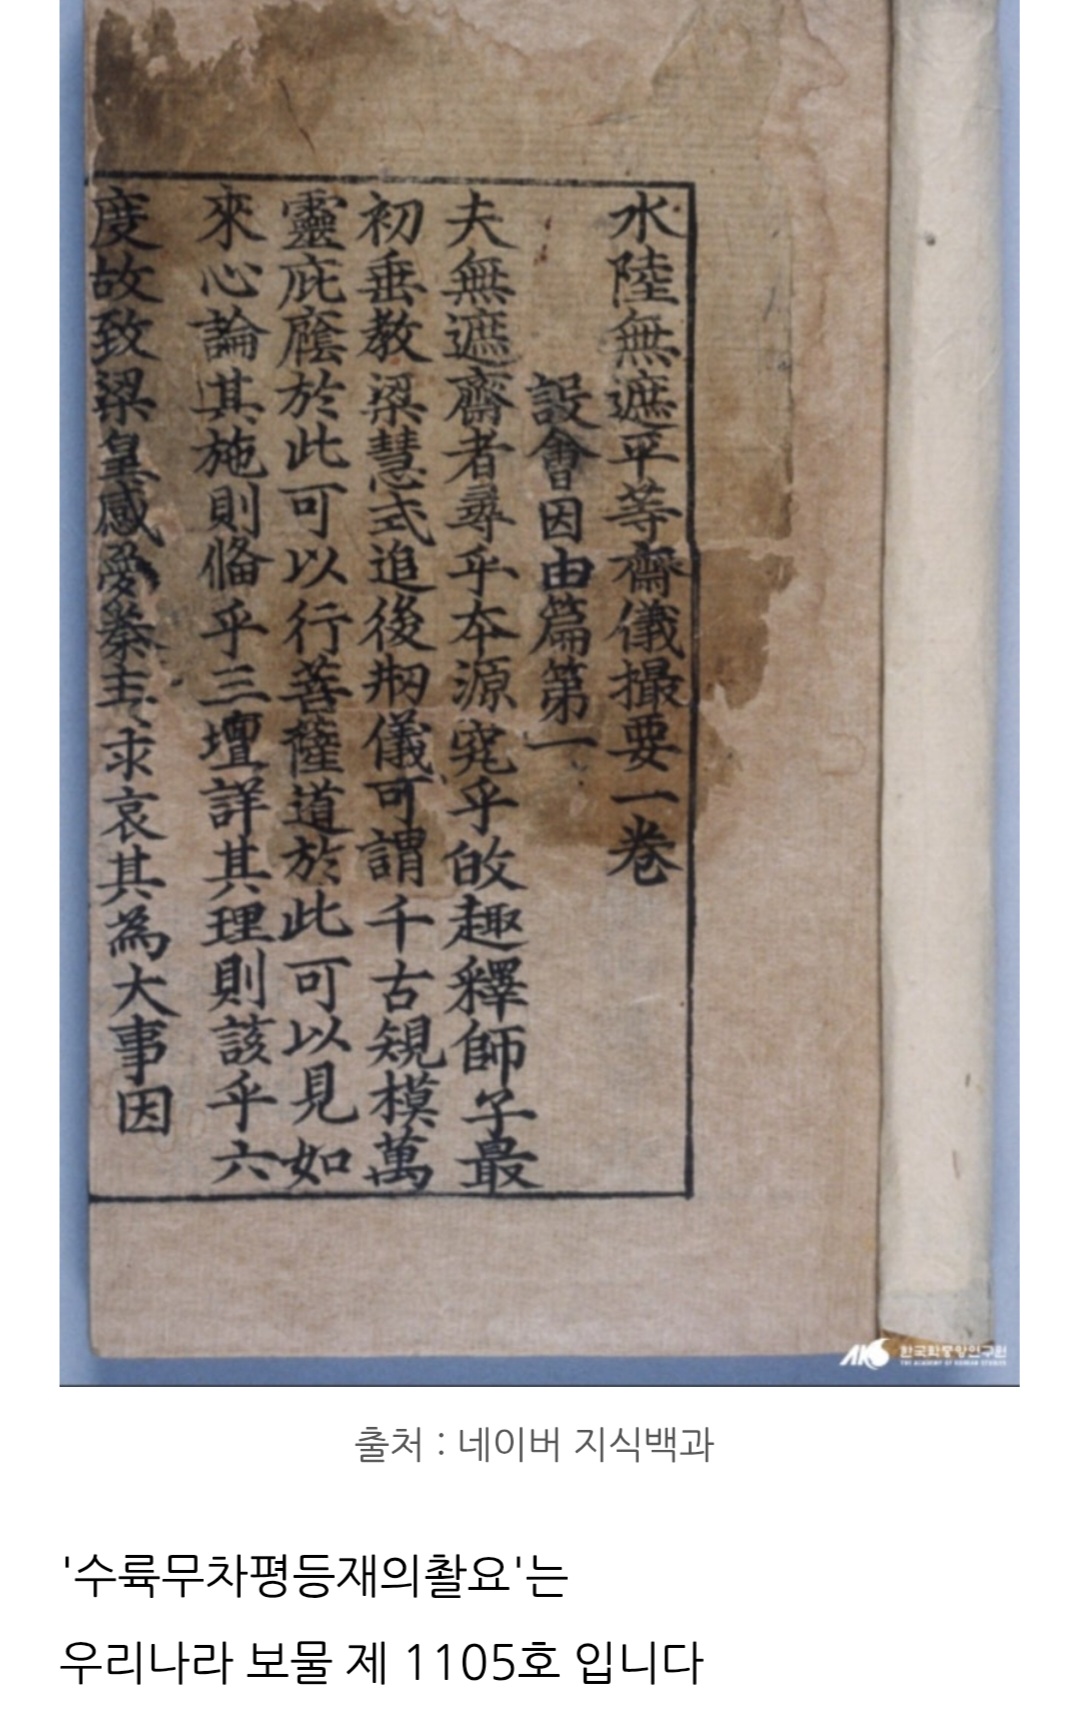 水陸無遮平等齋儀撮要一卷
設會因由篇第一
夫無遮齋者尋乎本源究乎的趣釋師子最
初垂教梁慧式追後剏儀可謂千古規模萬
靈庇廕於此可以行菩薩道於此可以見如
來心論其施則俻乎三壇詳其理則該乎六
度故致梁皇感愛秦主求哀其為大事因
AKS 한국학중앙연구원
THE ACADEMY OF KOREAN STUDIES
출처 : 네이버 지식백과
'수륙무차평등재의촬요'는
우리나라 보물 제 1105호 입니다